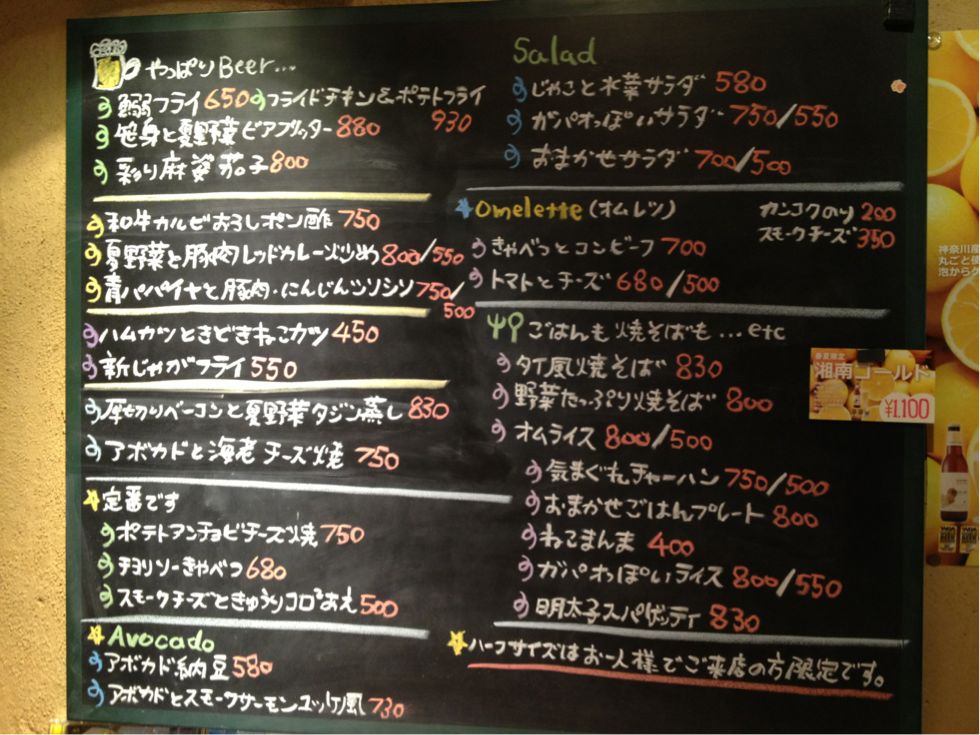 やっぱりBeer...
鰯フライ650 フライドチキン&ポテトフライ
930
笹身と夏野菜ビアフリッター 880
彩り麻婆茄子800
和牛カルビおろしポン酢 750
夏野菜と豚肉レッドカレー炒め800/550
青パパイヤと豚肉・にんじんシリシリ750/
500
ハムカツときどきねこカツ 450
新じゃがフライ 550
厚切りベーコンと夏野菜タジン蒸し 830
アボカドと海老チーズ焼 750
定番です
ポテトアンチョビチーズ焼750
チョリソーきゃべつ 680
スモークチーズときゅうりコロコロあえ500
Avocado
アボカド納豆580
アボカドとスモークサーモンユッケ風730
Salad
じゃこと水菜サラダ 580
ガパオっぽいサラダ 750/550
おまかせサラダ 700/500
Omelette (オムレツ)
カンコクのり 200
スモークチーズ350
きゃべつとコンビーフ 700
トマトとチーズ 680/500
ごはんも焼そばも...etc
タイ風焼そば 830
野菜たっぷり焼そば 800
オムライス 800/500
気まぐれチャーハン 750/500
おまかせごはんプレート 800
ねこまんま 400
ガパオっぽいライス 800/550
明太子スパゲッティ 830
ハーフサイズはお一人様でご来店の方限定です。
春夏限定
湘南ゴールド
¥1,100
神奈川産
丸ごと使
泡から